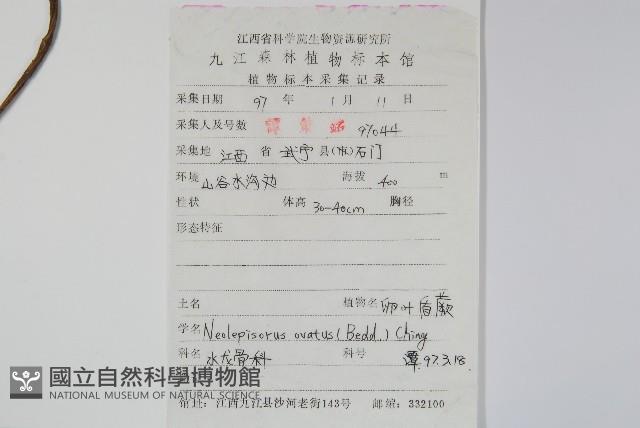 江西省科学院生物资源研究所
九江森林植物标本馆
植物标本采集记录
采集日期 97 年 1 月 11 日
采集人及号数 97044
采集地 江西 省 武宁 县(市) 石门
环境 山谷水沟边 海拔 400 m
性状 体高 30-40cm 胸径
形态特征
土名 植物名 卵叶盾蕨
学名 Neolepisorus ovatus (Bedd.) Ching
科名 水龙骨科 科号 潭 97.3.18.
國立自然科學博物館
NATIONAL MUSEUM OF NATURAL SCIENCE
馆址:江西九江县沙河老街143号 邮编:332100